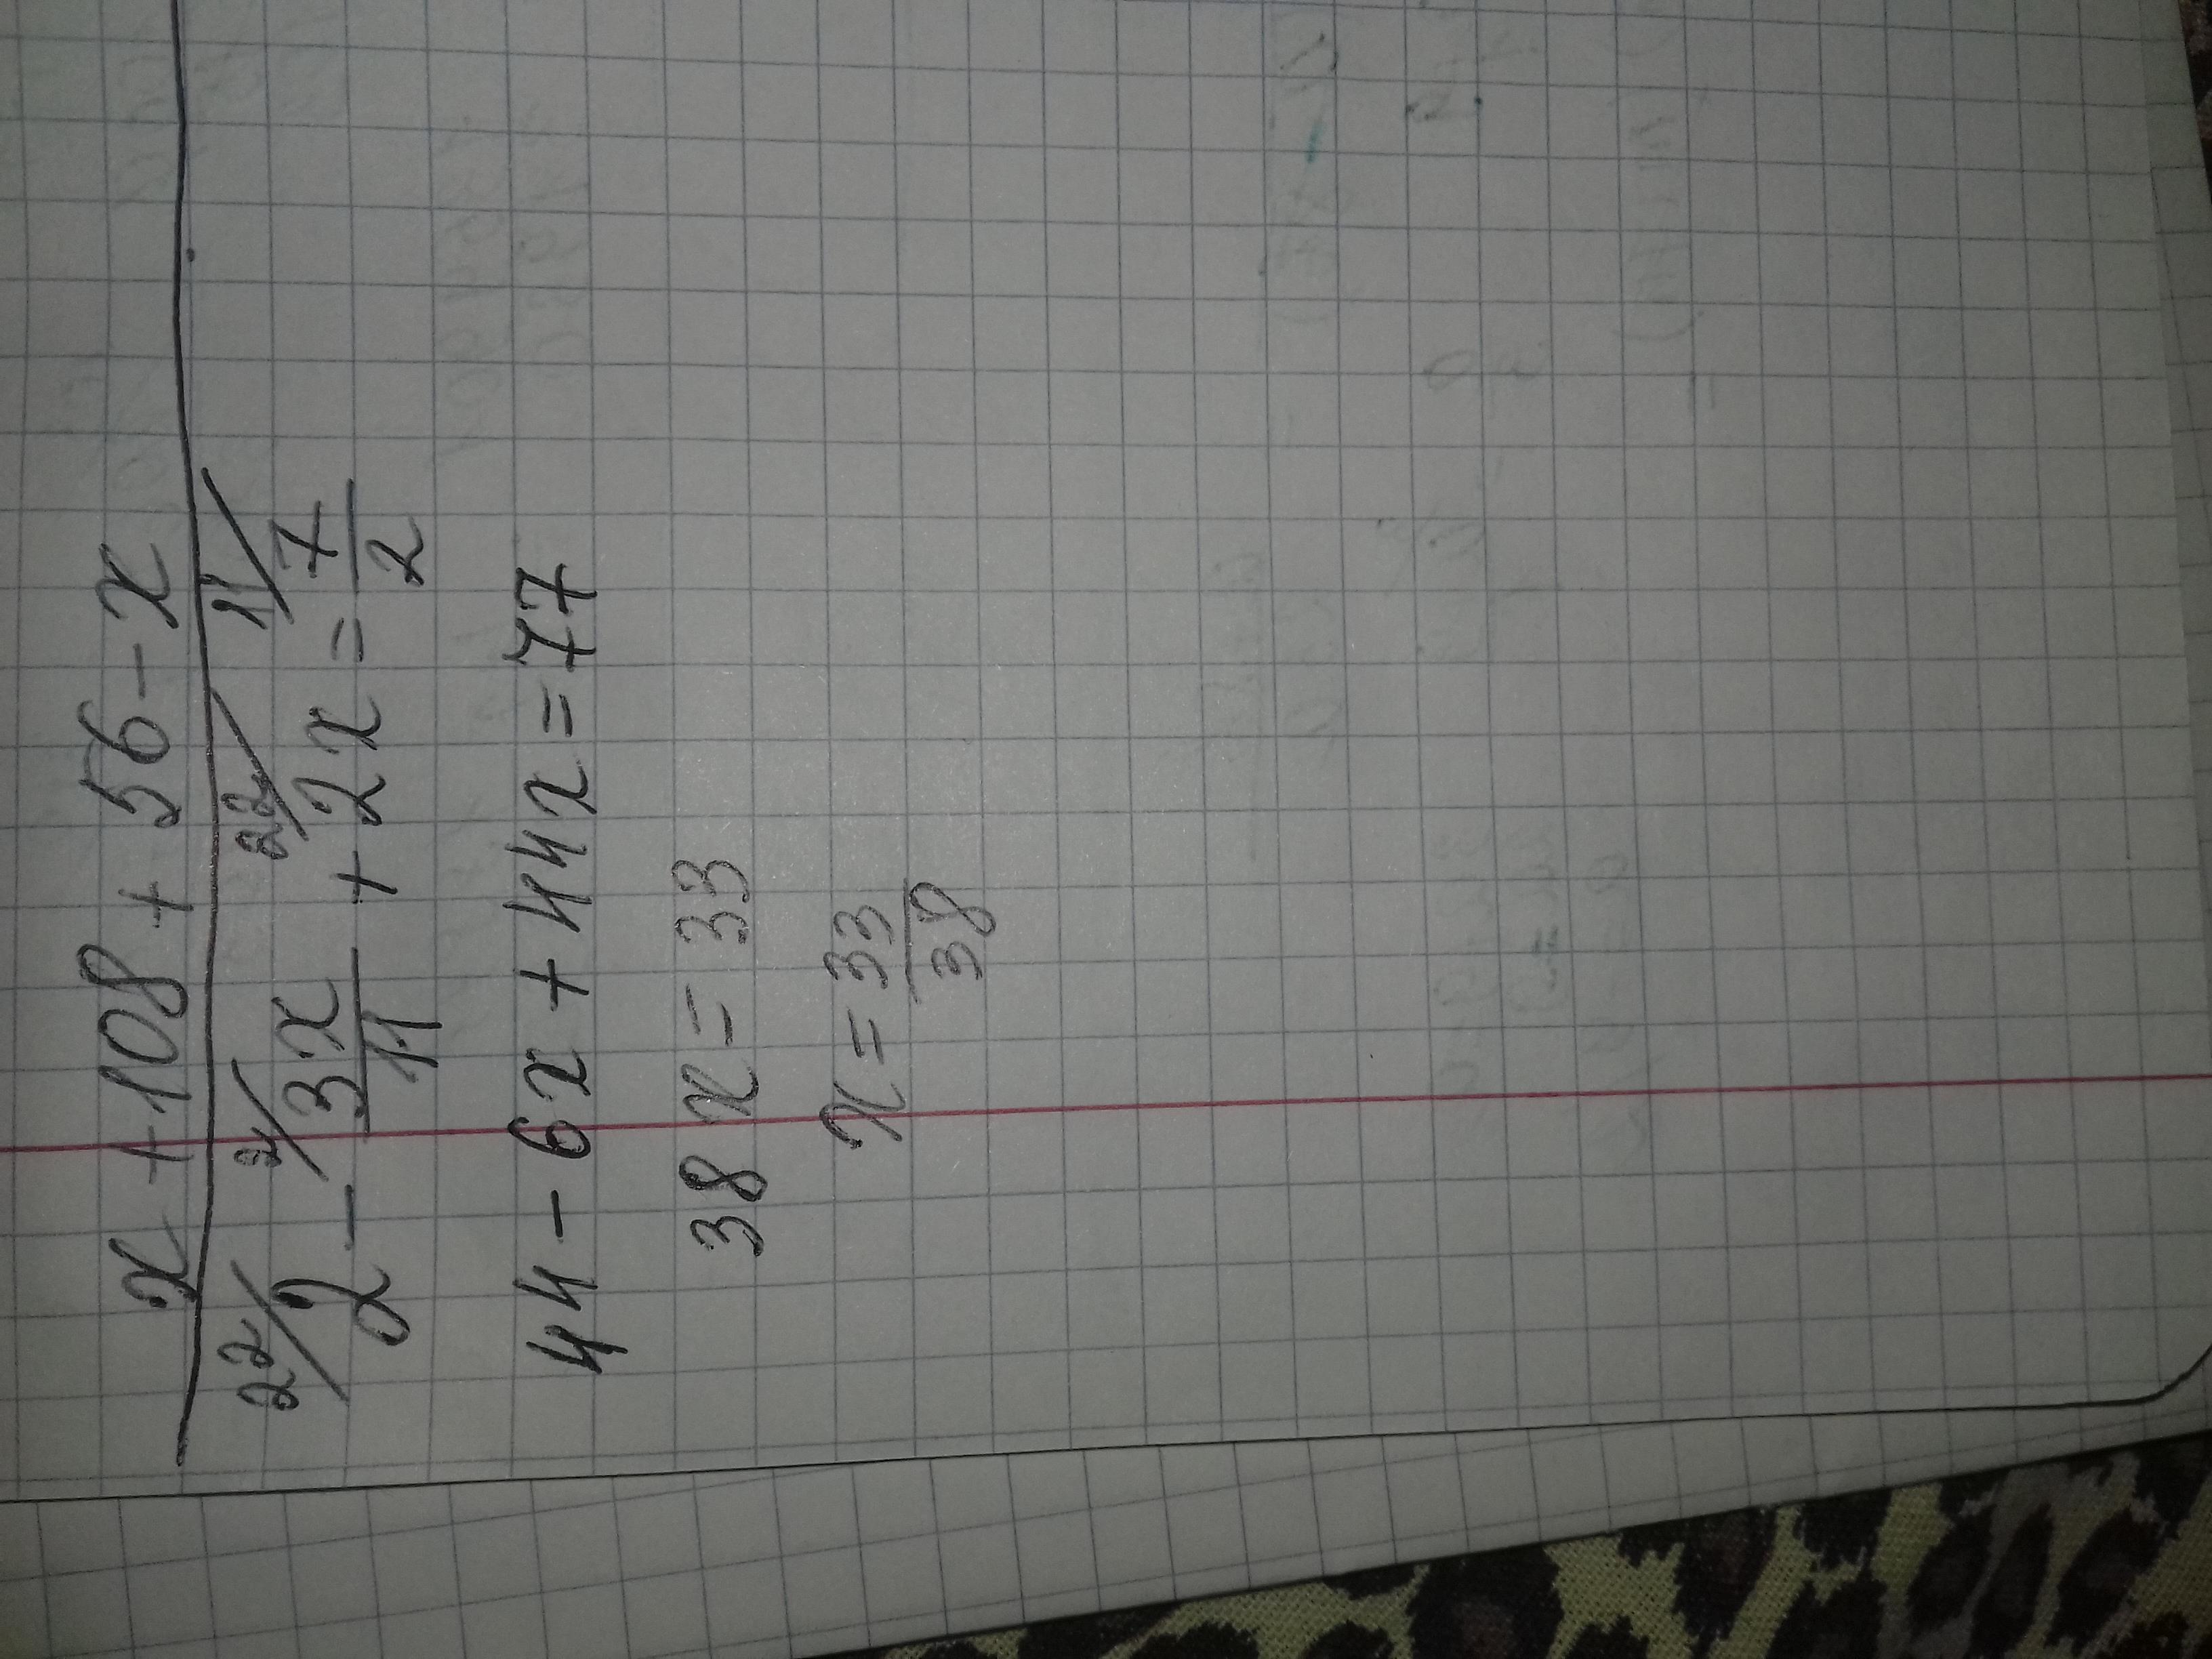 x + 108 + 56 - x
22/2 - 2/3x/11 + 22/2x = 11/7/2
44 - 6x + 44x = 77
38x = 33
x = 33/38